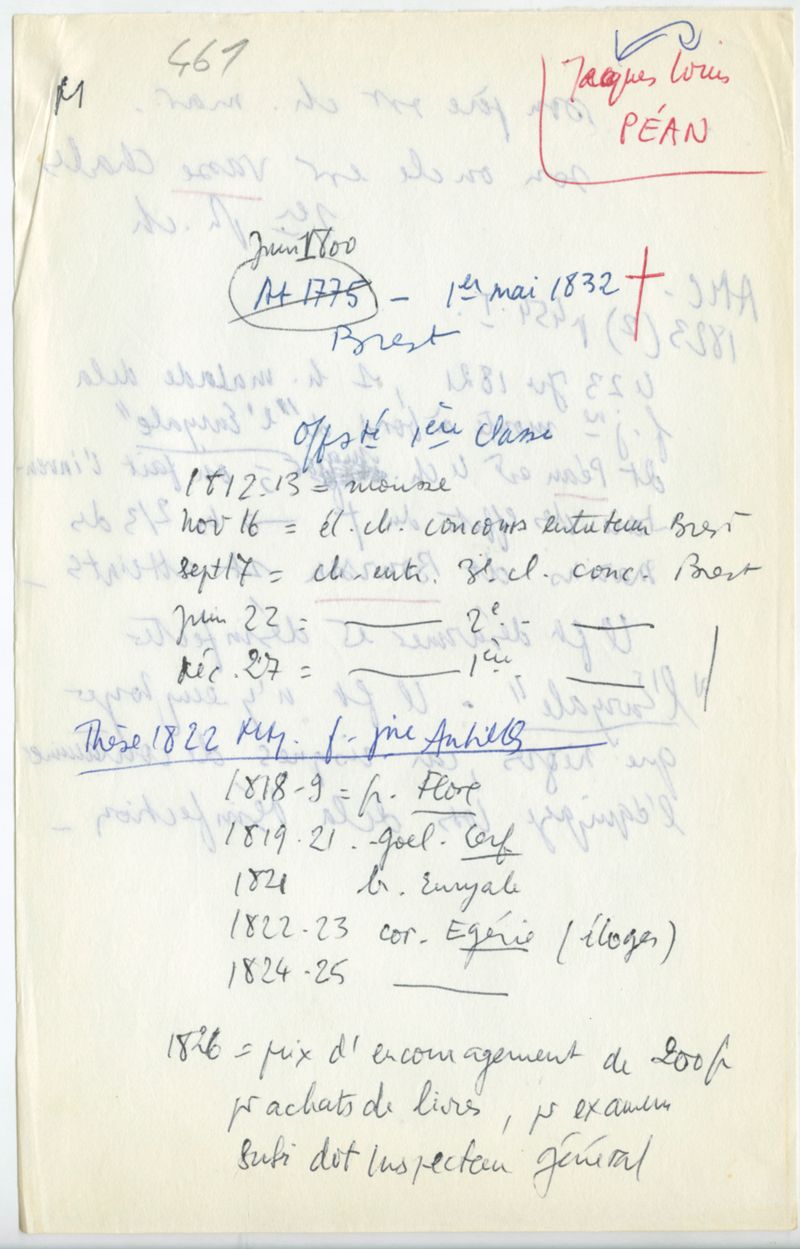 461
M
Jacques Louis
PÉAN
Juin 1800
At 1775 - 1er mai 1832 †
Brest
Off. sté 1ère classe
1812.13 = mousse
nov 16 = él. ch. concours entretenu Brest
sept 17 = ch. entr. 3e cl. conc. Brest
juin 22 = ——— 2e - ———
déc. 27 = ——— 1ère ———
Thèse 1822 Mtp. f. jne Antilles
1818-9 = fr. Flore
1819.21 . goel. Cerf
1821 br. Euryale
1822-23 cor. Egérie (éloges)
1824-25 ———
1826 = prix d'encouragement de 200 fr
pr achats de livres, pr examen
subi dvt Inspecteur général